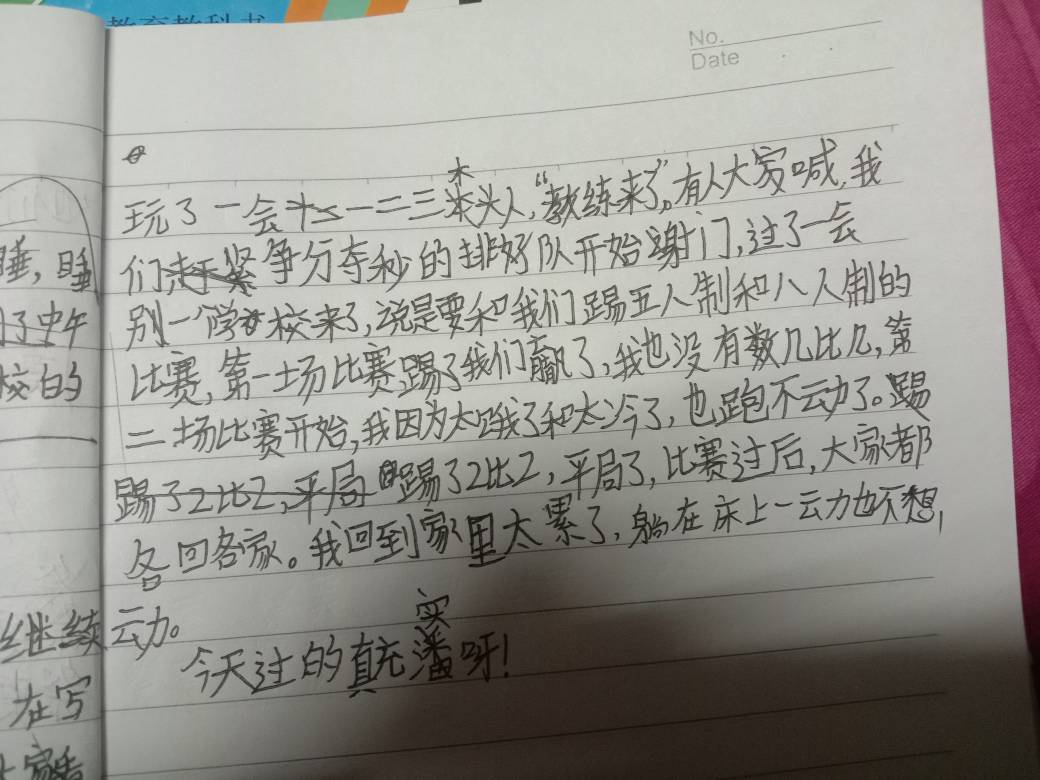 教育教科书
No.
Date
玩了一会一二三木头人，“教练来了”。有人大家喊，我
们争分夺秒的排好队开始射门，过了一会
别一个学校来了，说是要和我们踢五人制和八人制的
比赛，第一场比赛踢了我们赢了，我也没有数几比几，第
二场比赛开始，我因为太饿了和太冷了，也跑不动了。踢
踢了2比2，平局踢了2比2，平局了，比赛过后，大家都
各回各家。我回到家里太累了，躺在床上一动也不想，
动。
今天过的真充实呀！
睡，睡
了中午
校的
继续
在写